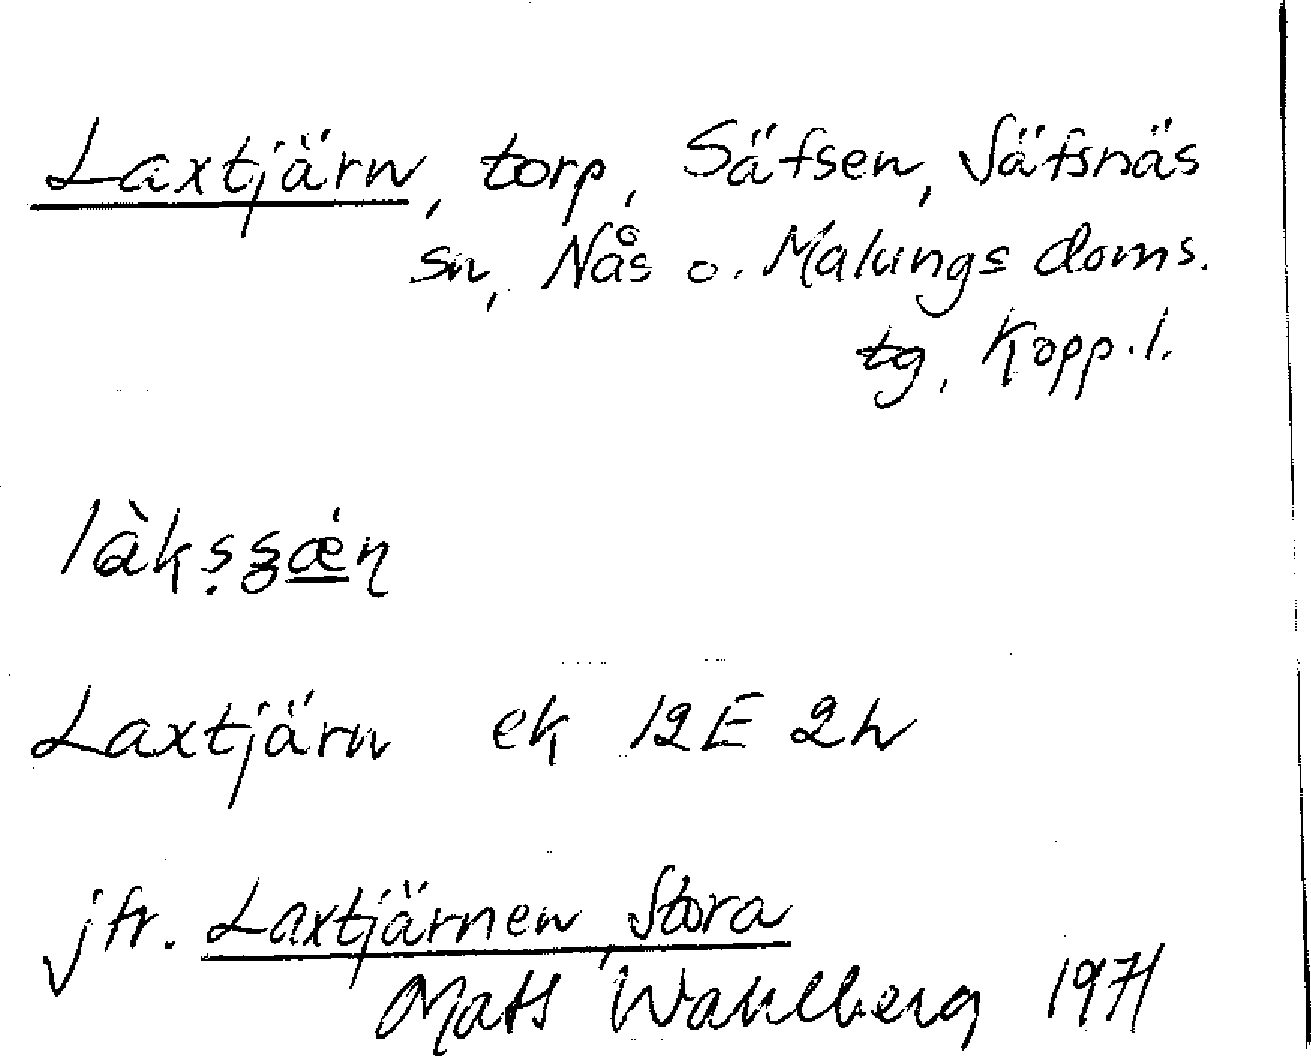 Laxtjärn, torp, Säfsen, Säfsnäs
sn, Nås o. Malungs doms.
tg, Kopp. l.
Laxtjärn ek 12E 2h
jfr. Laxtjärnen, Stora
Mats Wahlberg 1971